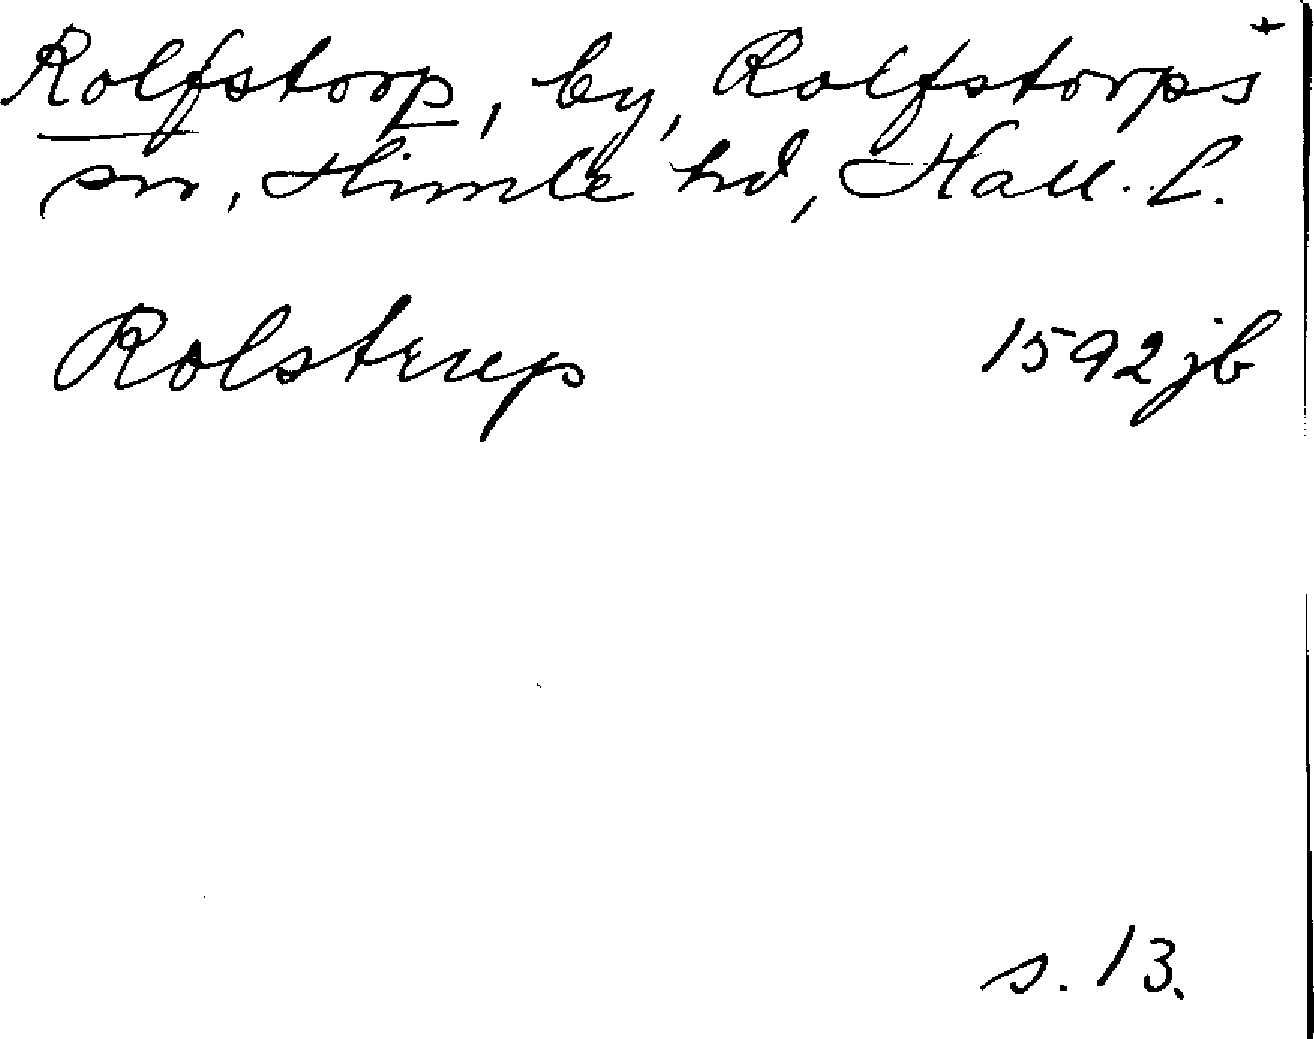 Rolfstorp, by, Rolfstorps +
sn, Himle hd, Hall. l.
Rolstrup 1592 jb
s. 13.